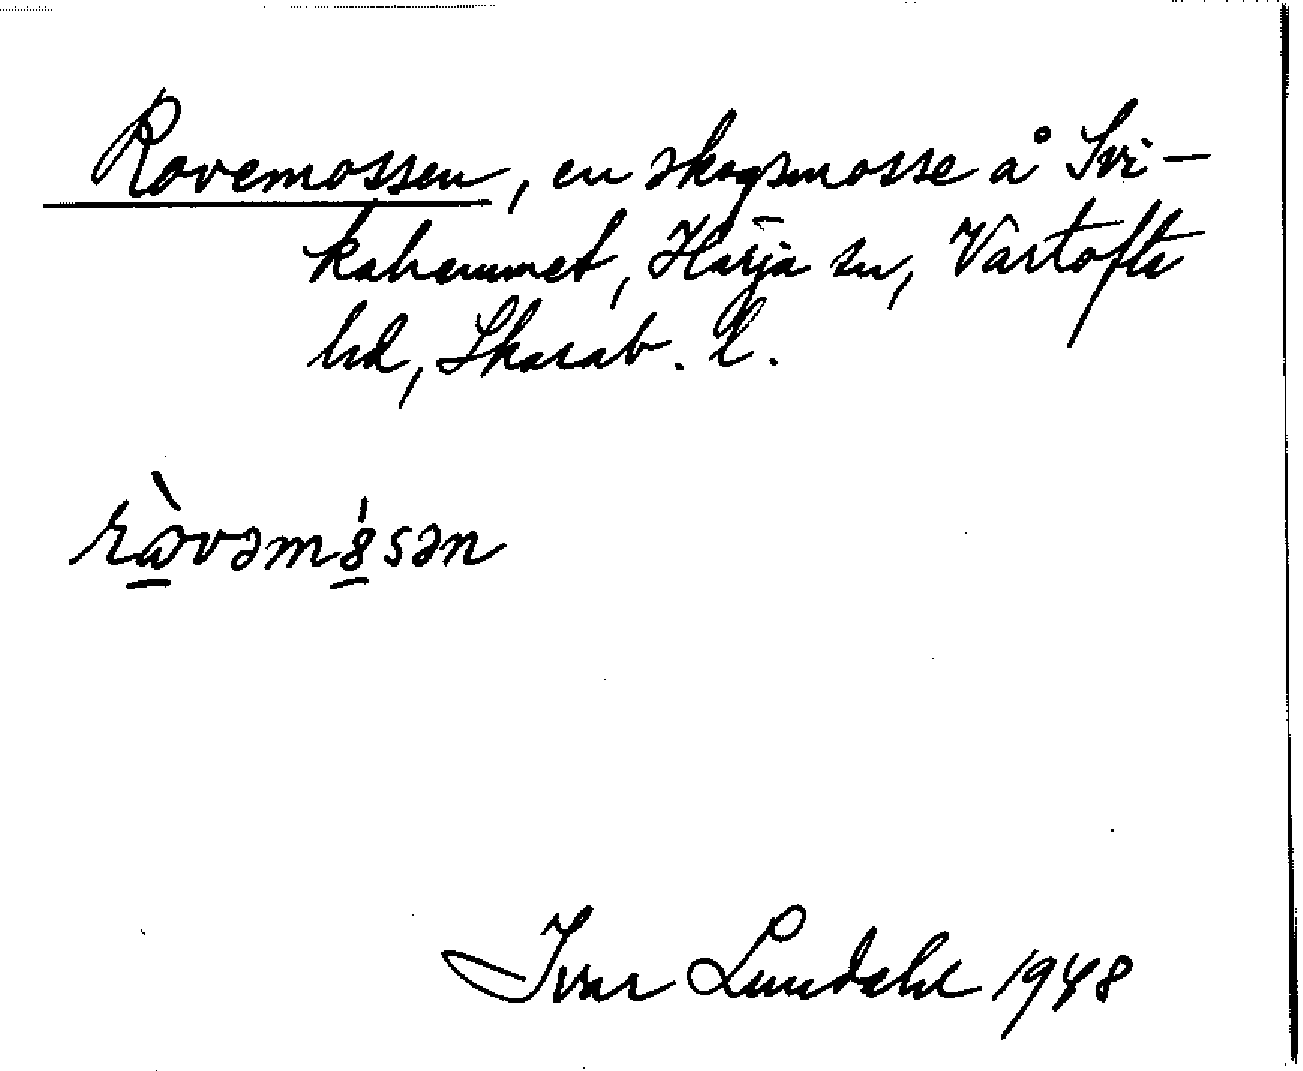 Rovemossen, en skogsmosse å Svi-
kahemmet, Härja sn, Vartofta
hd, Skarab. l.
ràvəm8sən
Ivar Lundahl 1948